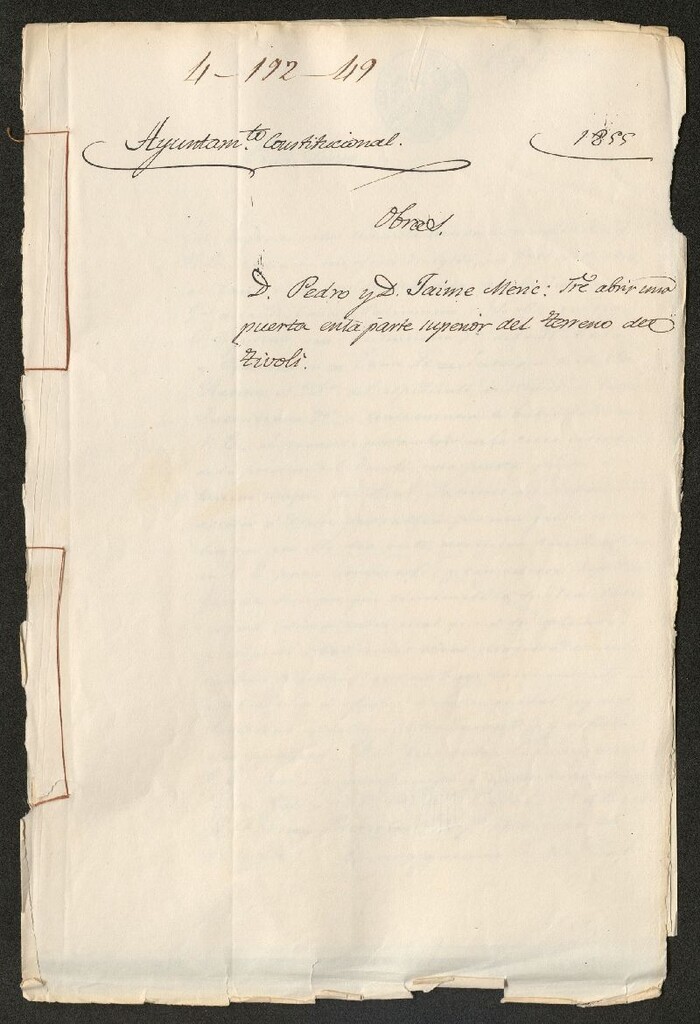 4-192-49
Ayuntam.to Constitucional. 1855
Obras.
D. Pedro y D. Jaime Meric: Sre abrir una
puerta en la parte superior del terreno del
tivoli.